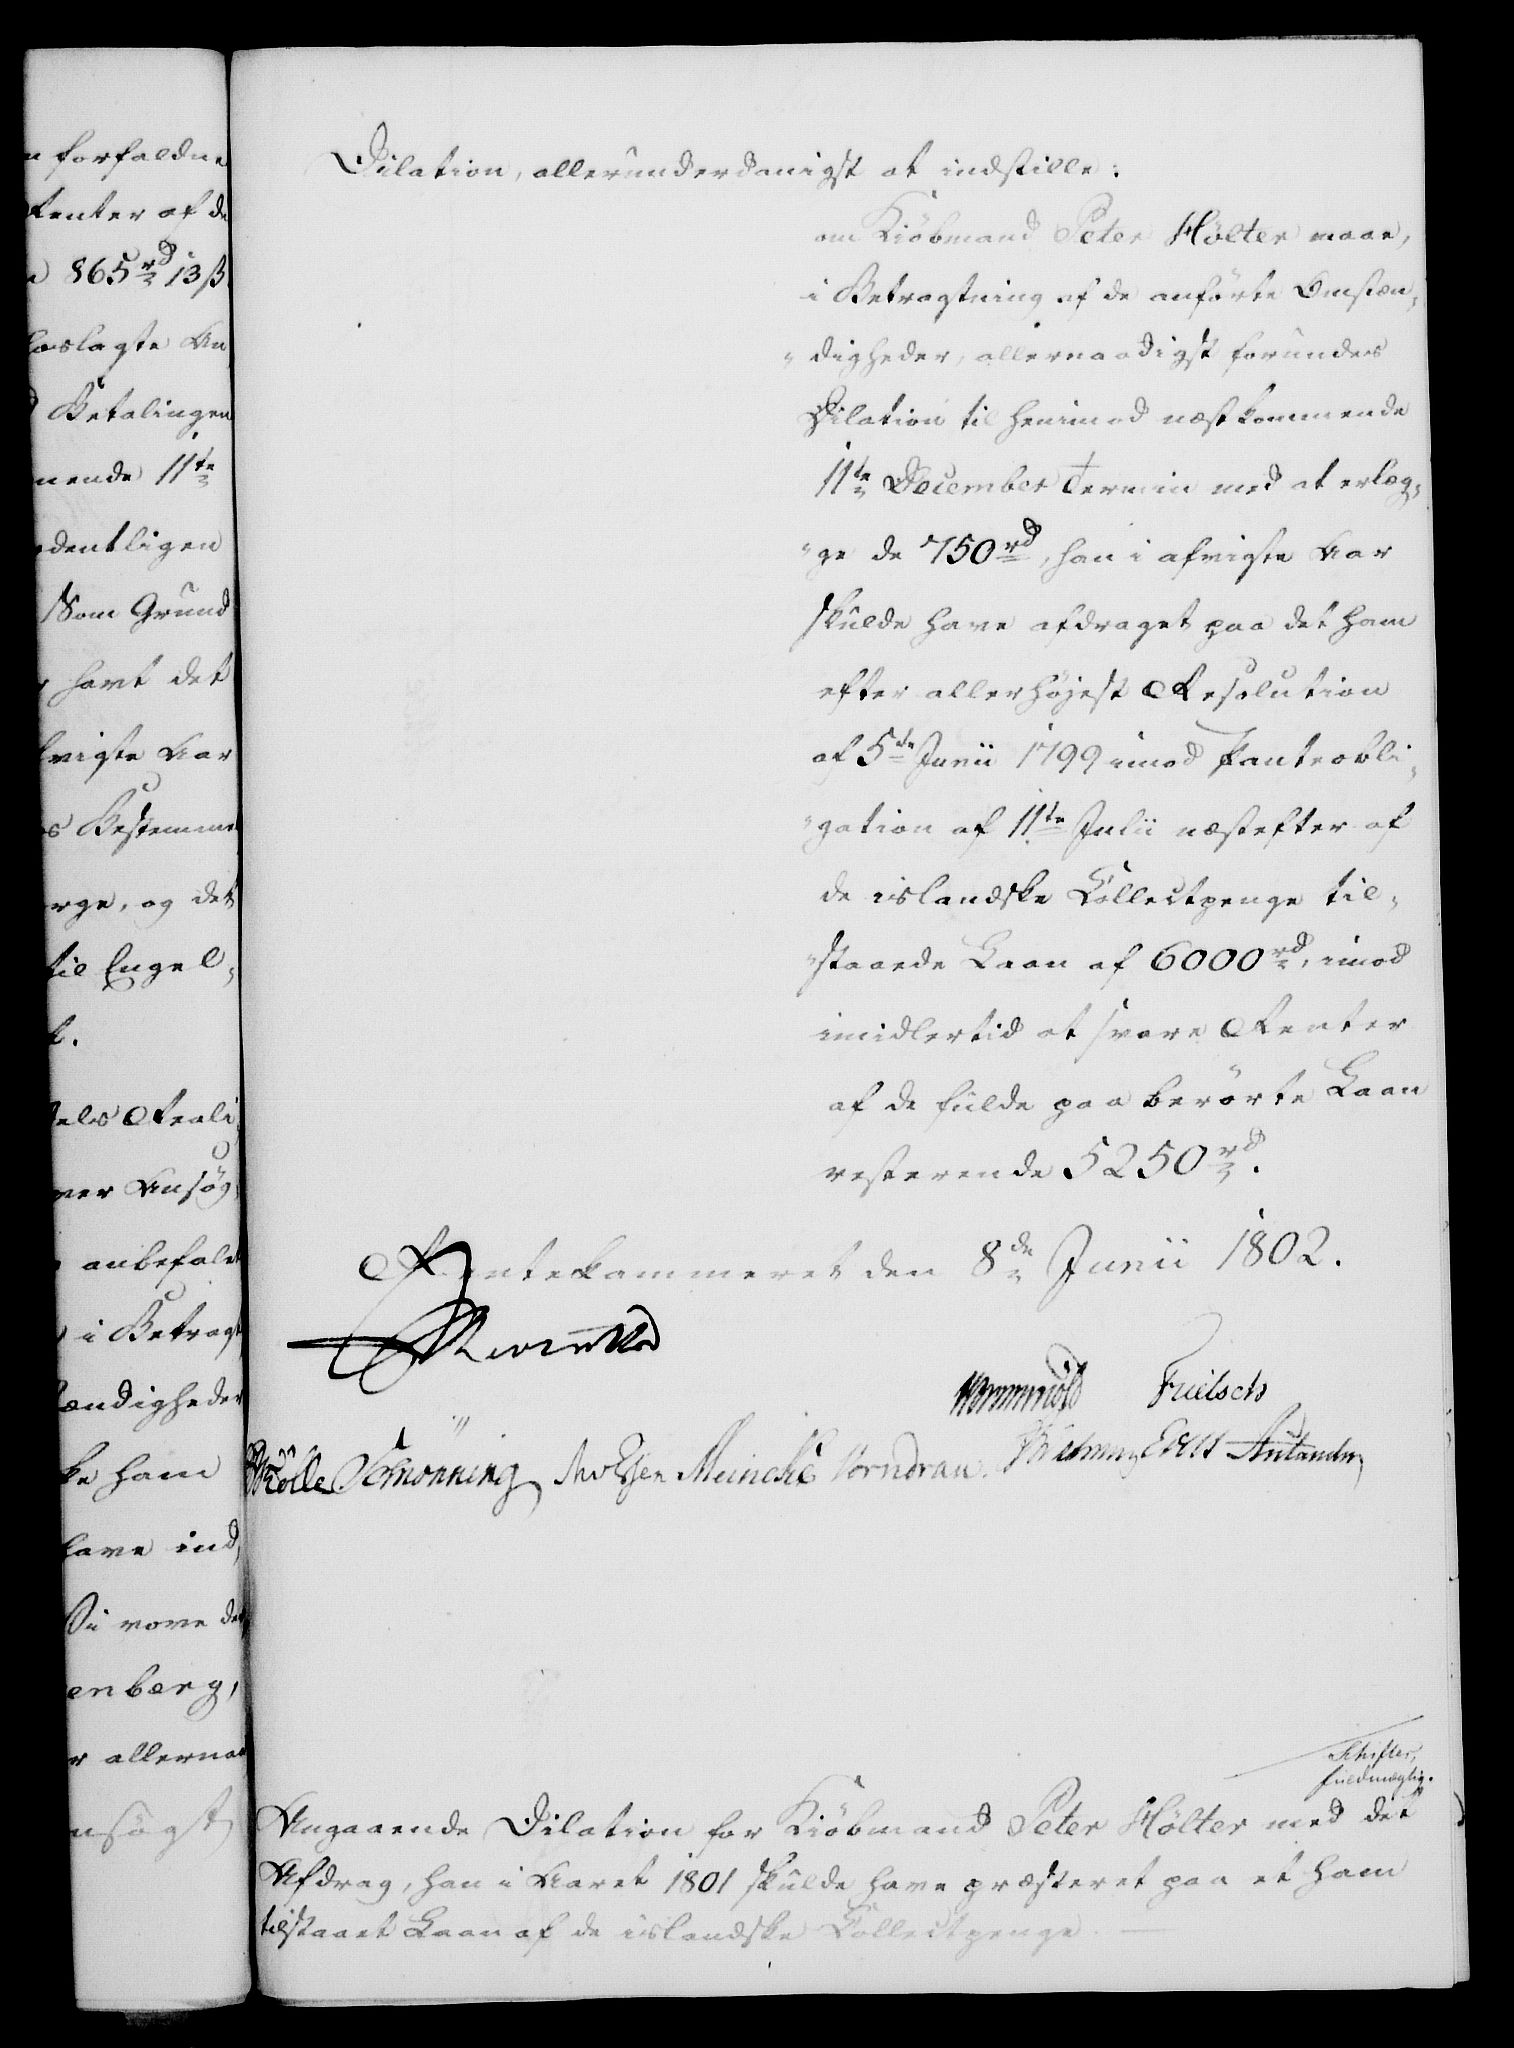 n forfaldne
Renter af de
865 rd 13 ß
loslagte An
Betalingen
mende 11te
dentligen
Som Grund
havt det
fvigte Aar
Bestemme
rge, og det
til Engel-
t.
els Reali
ver Ansøg
anbefalet
i Betragt
ændigheder
ke ham
have ind
Vi vove de
enberg,
r allernaa
nsøgt
Dilation, allerunderdanigst at indstille:
om Kiøbmand Peter Hölter maae,
i Betragtning af de anförte Omstæn-
digheder, allernaadigst forundes
Dilation til henimod næstkommende
11te December Termin med at erlæg-
ge de 750 rd, han i afvigte Aar
skulde have afdraget paa det ham
efter allerhöjest Resolution
af 5te Junii 1799 imod Panteobli-
gation af 11te Julii næstefter af
de islandske Collectpenge til-
staaede Laan af 6000 rd, imod
imidlertid at svare Renter
af de fulde paa berörte Laan
resterende 5250 rd.
Rentekammeret den 8de Junii 1802.
Reventlow
Wormskiold Frielsch
Mölle Schönning Meincke Vorndran
Schifter,
fuldmægtig.
Angaaende Dilation for Kiöbmand Peter Hölter med det
Afdrag, han i Aaret 1801 skulde have præsteret paa et ham
tilstaaet Laan af de islandske Collectpenge.